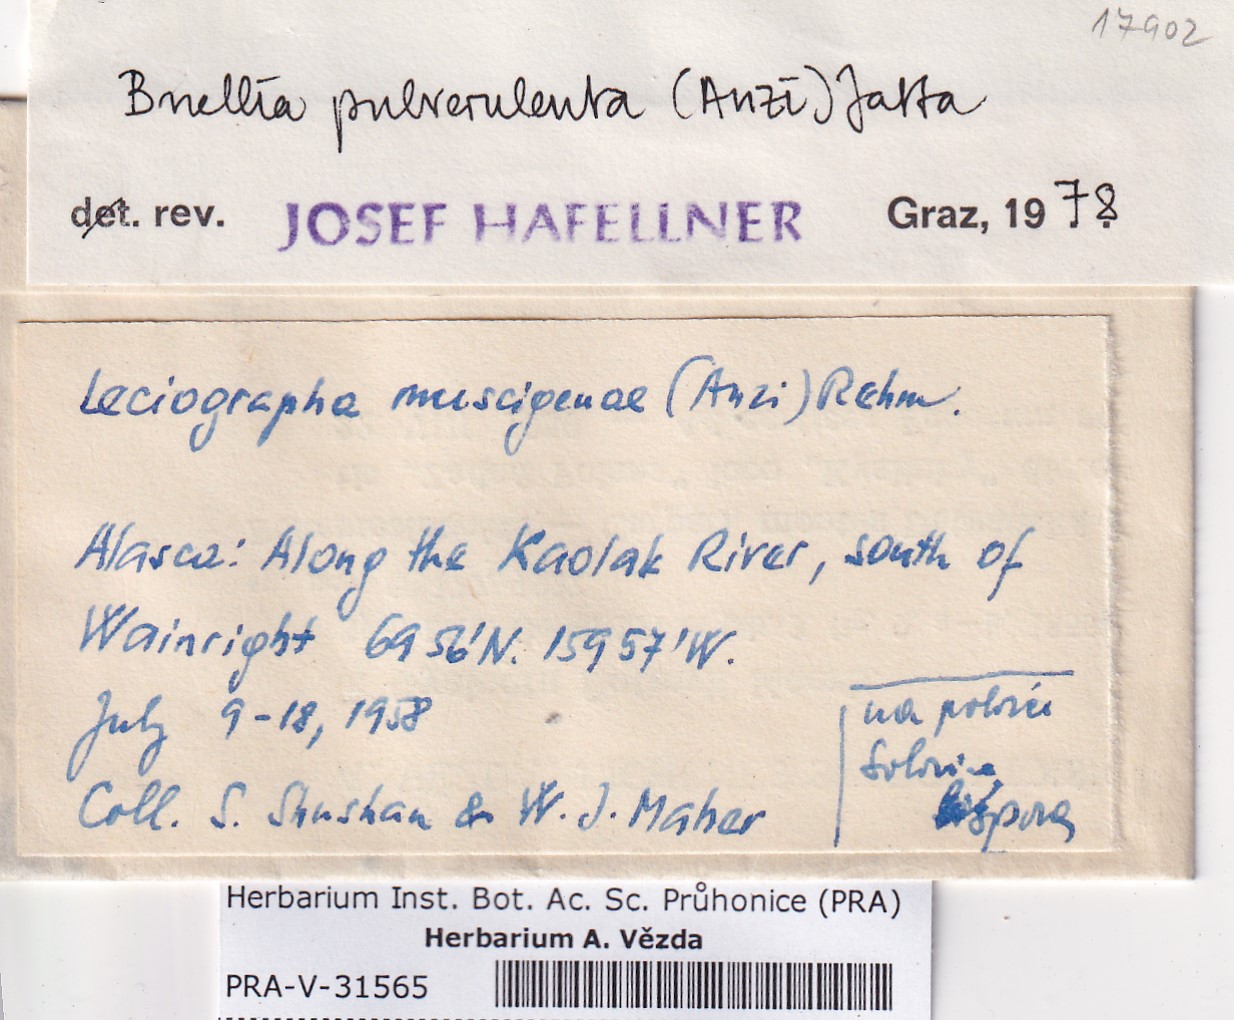 17902
Buellia pulverulenta (Anzi) Jatta
det. rev. JOSEF HAFELLNER Graz, 1978
Leciographa muscigenae (Anzi) Rehm.
Alasca: Along the Kaolak River, south of
Wainright 69 56'N. 159 57'W.
July 9-18, 1958
Coll. S. Shushan & W. J. Maher
na
Solorina
bispora
Herbarium Inst. Bot. Ac. Sc. Průhonice (PRA)
Herbarium A. Vězda
PRA-V-31565